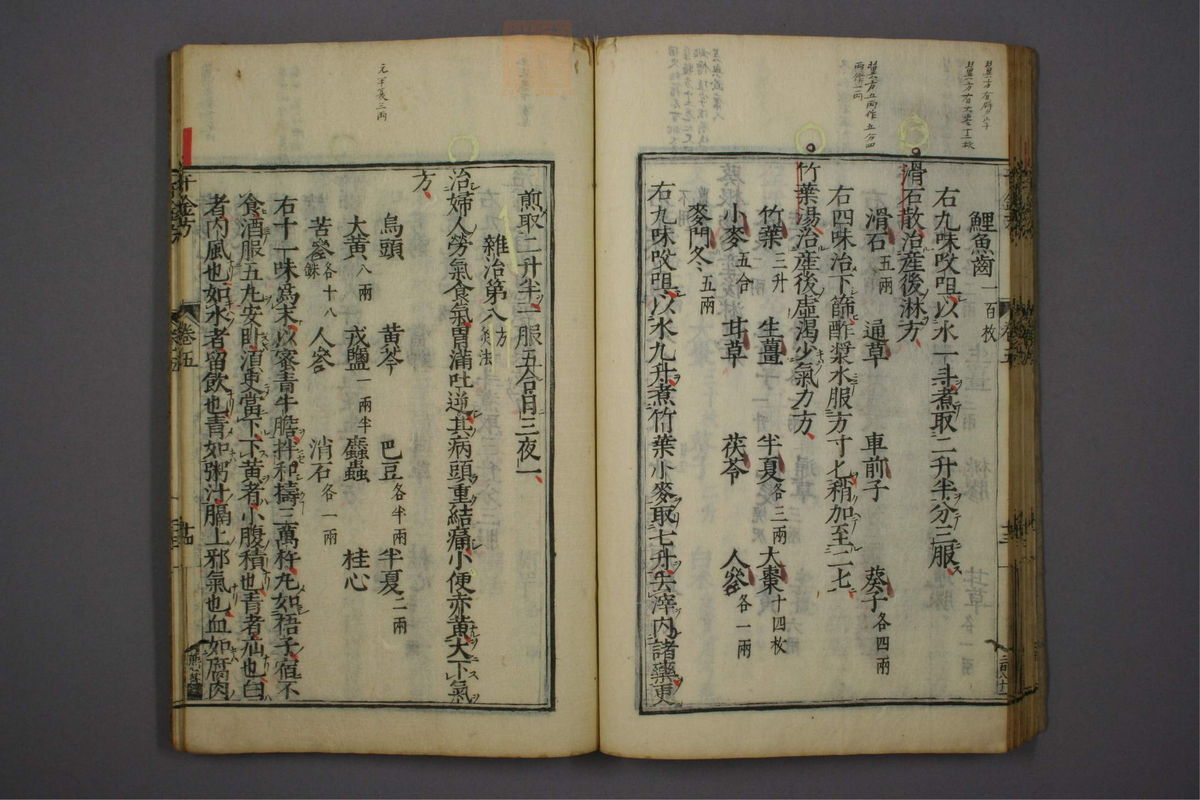 鯉魚齒一百枚
右九味㕮咀以水一斗煮取二升半分三服
滑石散治産後淋方
滑石五兩 通草 車前子 葵子各四兩
右四味治下篩酢漿水服方寸匕稍加至二七
竹葉湯治産後虛渴少氣力方
竹葉三升 生薑 半夏各三兩 大棗十四枚
小麥五合 甘草 茯苓 人參各一兩
麥門冬五兩
右九味㕮咀以水九升煮竹葉小麥取七升去滓内諸藥更
煎取二升半一服五合日三夜一
雜治第八方 灸法
治婦人勞氣食氣胃滿吐逆其病頭重結痛小便赤黃大下氣
方
烏頭 黃芩 巴豆各半兩 半夏二兩
大黃八兩 戎鹽一兩半 䗪蟲 桂心
苦參各十八銖 人參 消石各一兩
右十一味爲末以蜜青牛膽拌和擣三萬杵丸如梧子宿不
食酒服五丸安臥須臾當下下黃者小腹積也青者疝也白
者内風也如水者留飲也青如粥汁膈上邪氣也血如腐肉
千金方
卷五